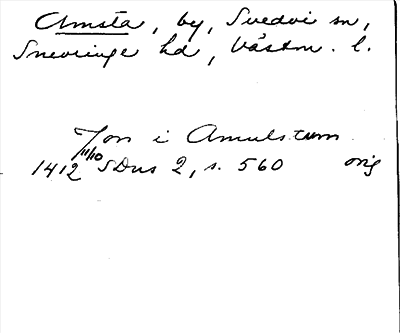 Amsta, by, Svedvi sn,
Snevringe hd, Västm. l.
Jon i Amulstum
1412 11/10 SDns 2, s. 560 orig